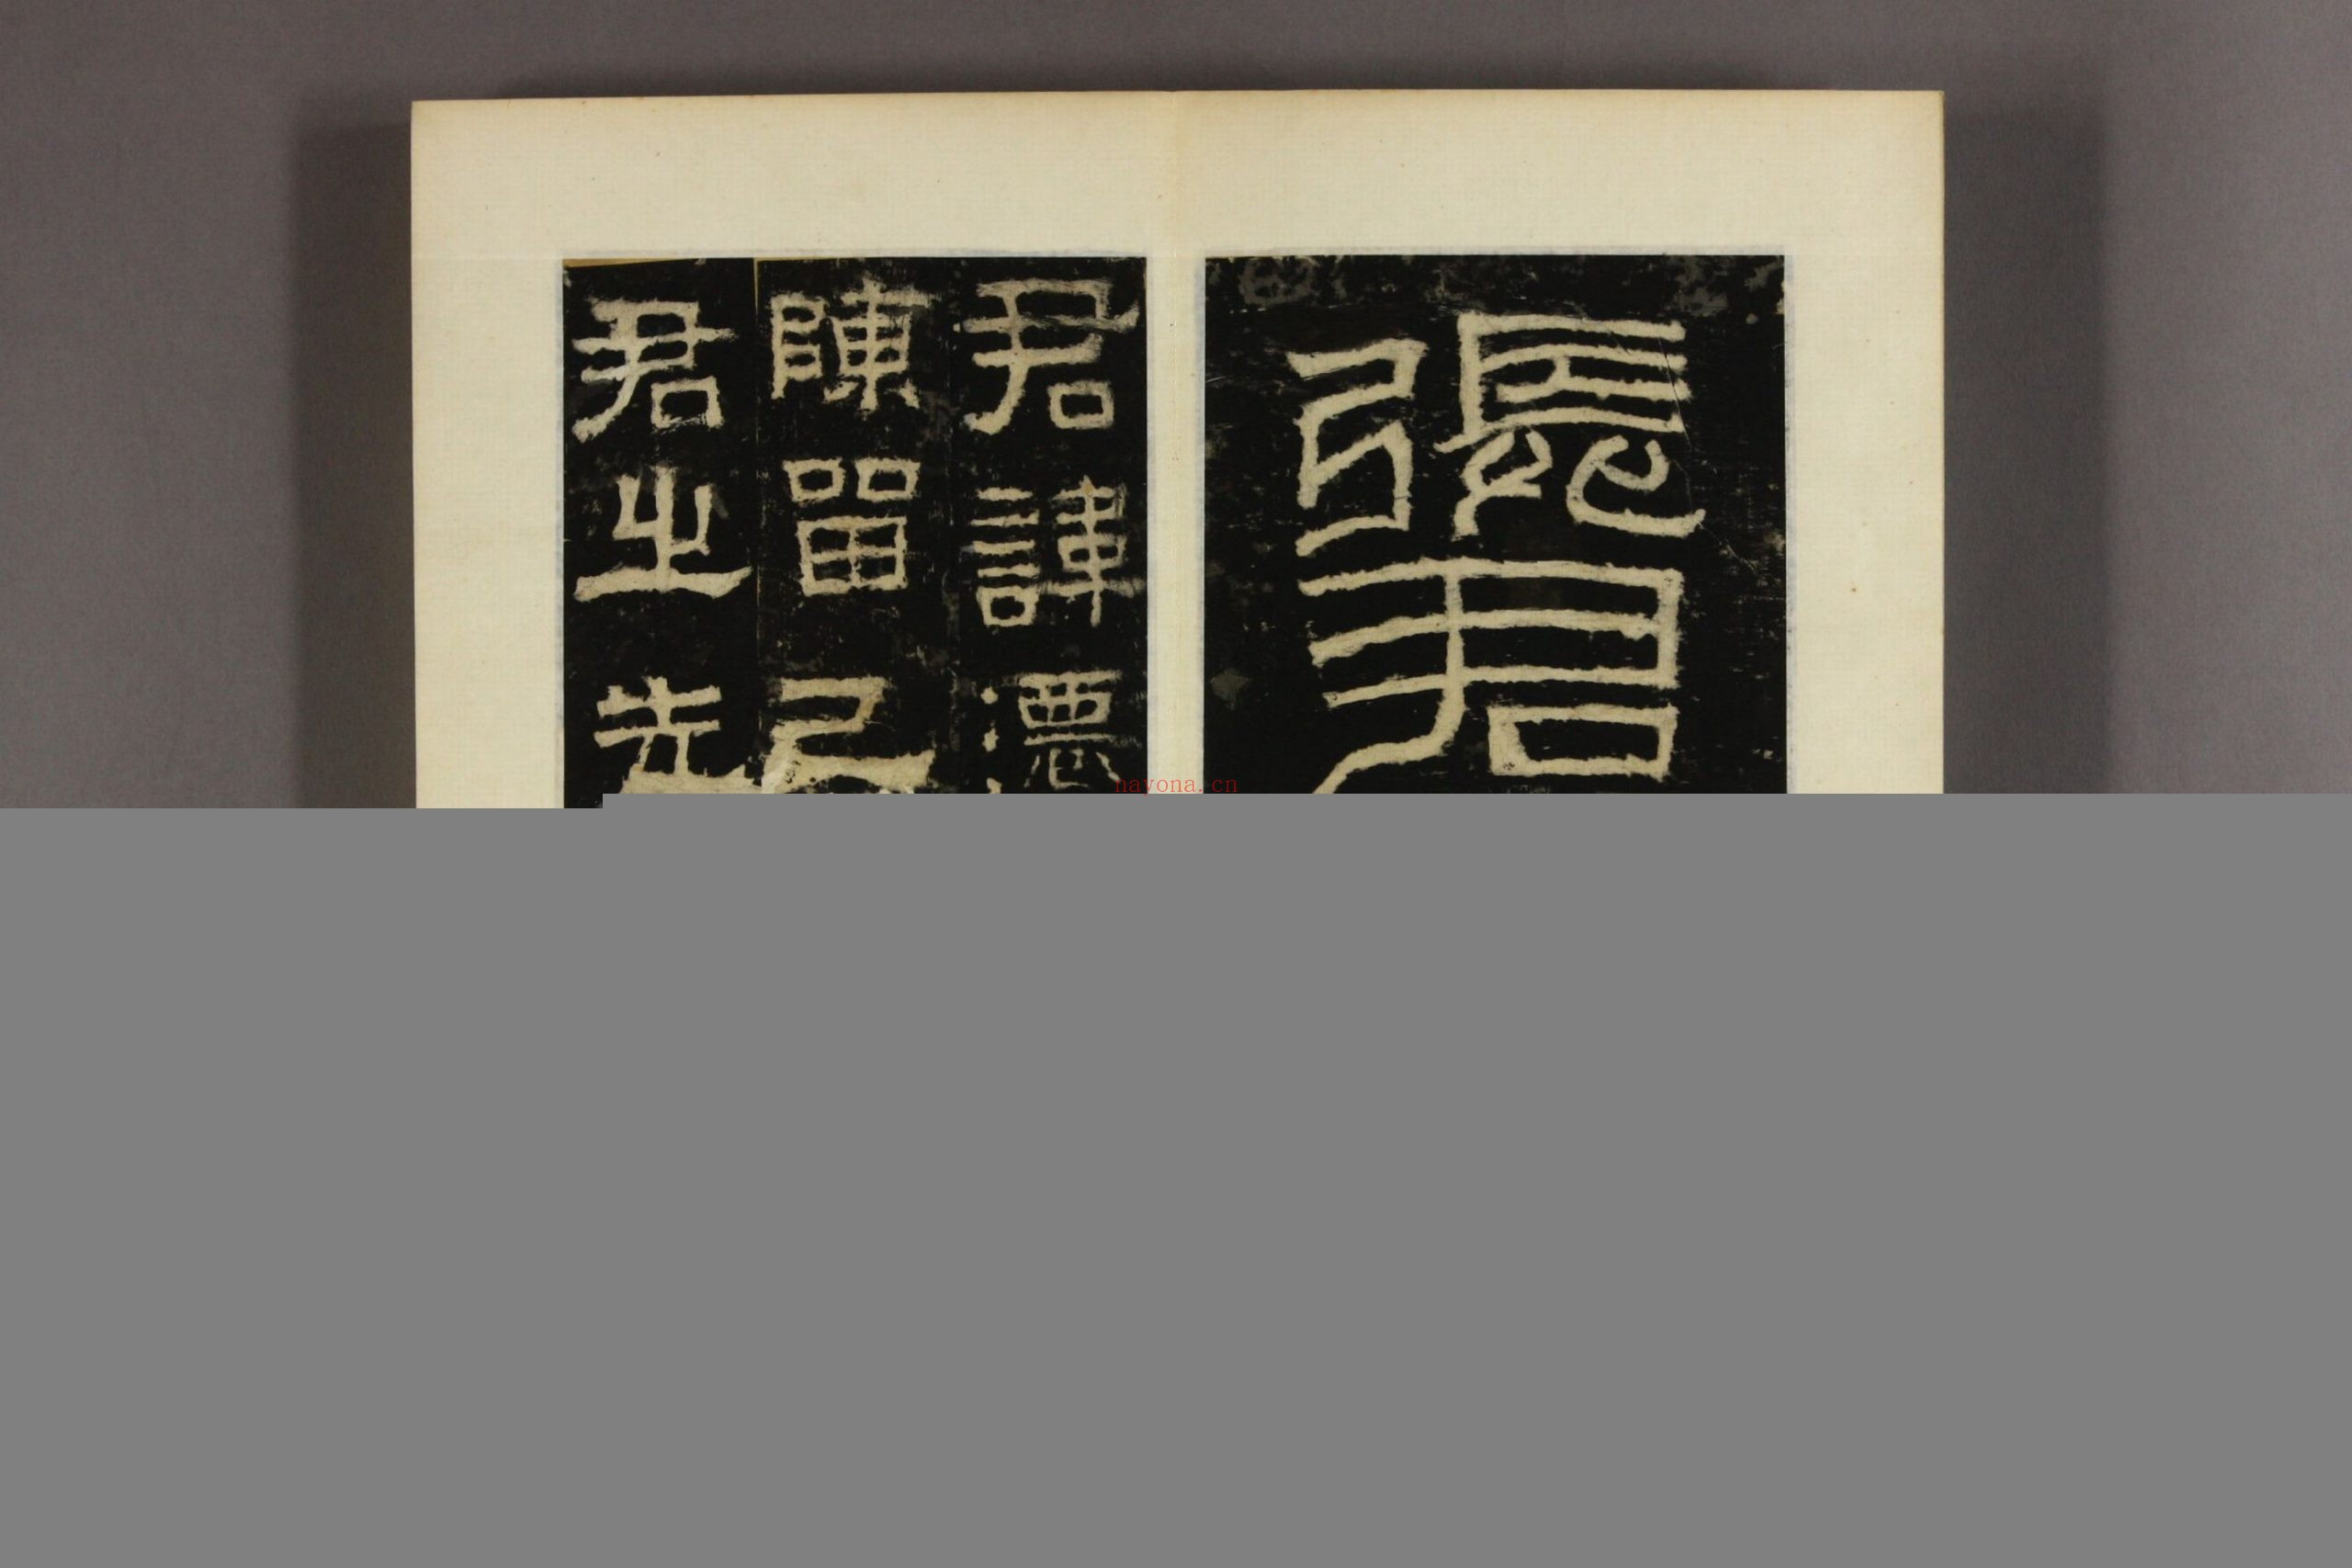 張君
君諱
陳留己
君之先
nayona.cn